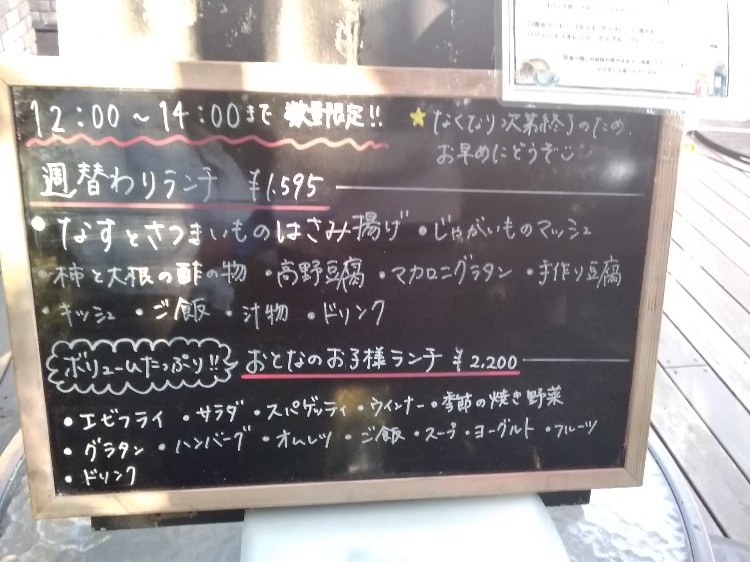 12:00～14:00まで 数量限定!!
★なくなり次第終了のため、
お早めにどうぞ
週替わりランチ ¥1,595
・なすとさつまいものはさみ揚げ ・じゃがいものマッシュ
・柿と大根の酢の物 ・高野豆腐 ・マカロニグラタン ・手作り豆腐
・キッシュ ・ご飯 ・汁物 ・ドリンク
ボリュームたっぷり!! おとなのお子様ランチ ¥2,200
・エビフライ ・サラダ ・スパゲッティ ・ウインナー ・季節の焼き野菜
・グラタン ・ハンバーグ ・オムレツ ・ご飯 ・スープ ・ヨーグルト ・フルーツ
・ドリンク